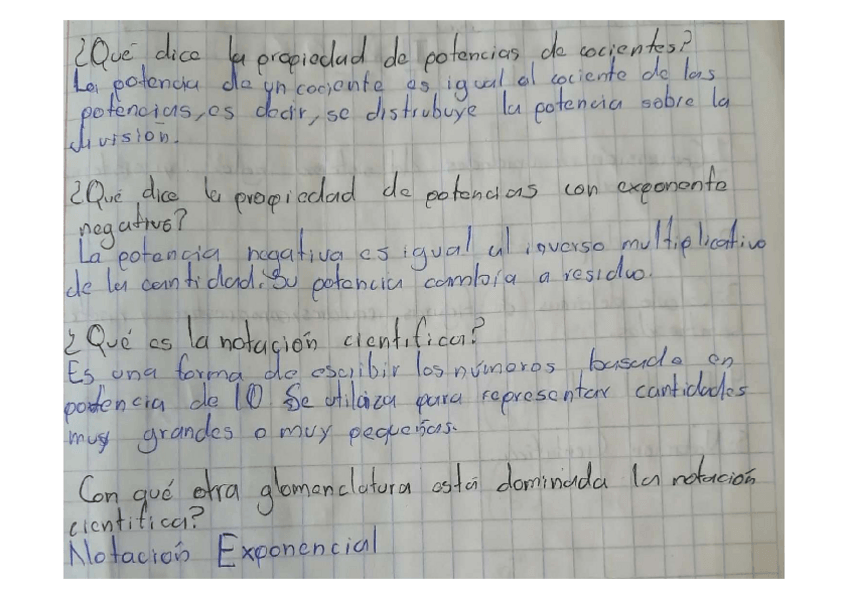 ¿Qué dice la propiedad de potencias de cocientes?
La potencia de un cociente es igual al cociente de las
potencias, es decir, se distrubuye la potencia sobre la
división.
¿Qué dice la propiedad de potencias con exponente
negativo?
La potencia negativa es igual al inverso multiplicativo
de la cantidad. Su potencia cambia a residuo.
¿Qué es la notación cientifica?
Es una forma de escribir los números basada en
potencia de 10 Se utilaiza para representar cantidades
muy grandes o muy pequeñas.
Con qué otra glomenclatura está dominada la notación
cientifica?
Notación Exponencial